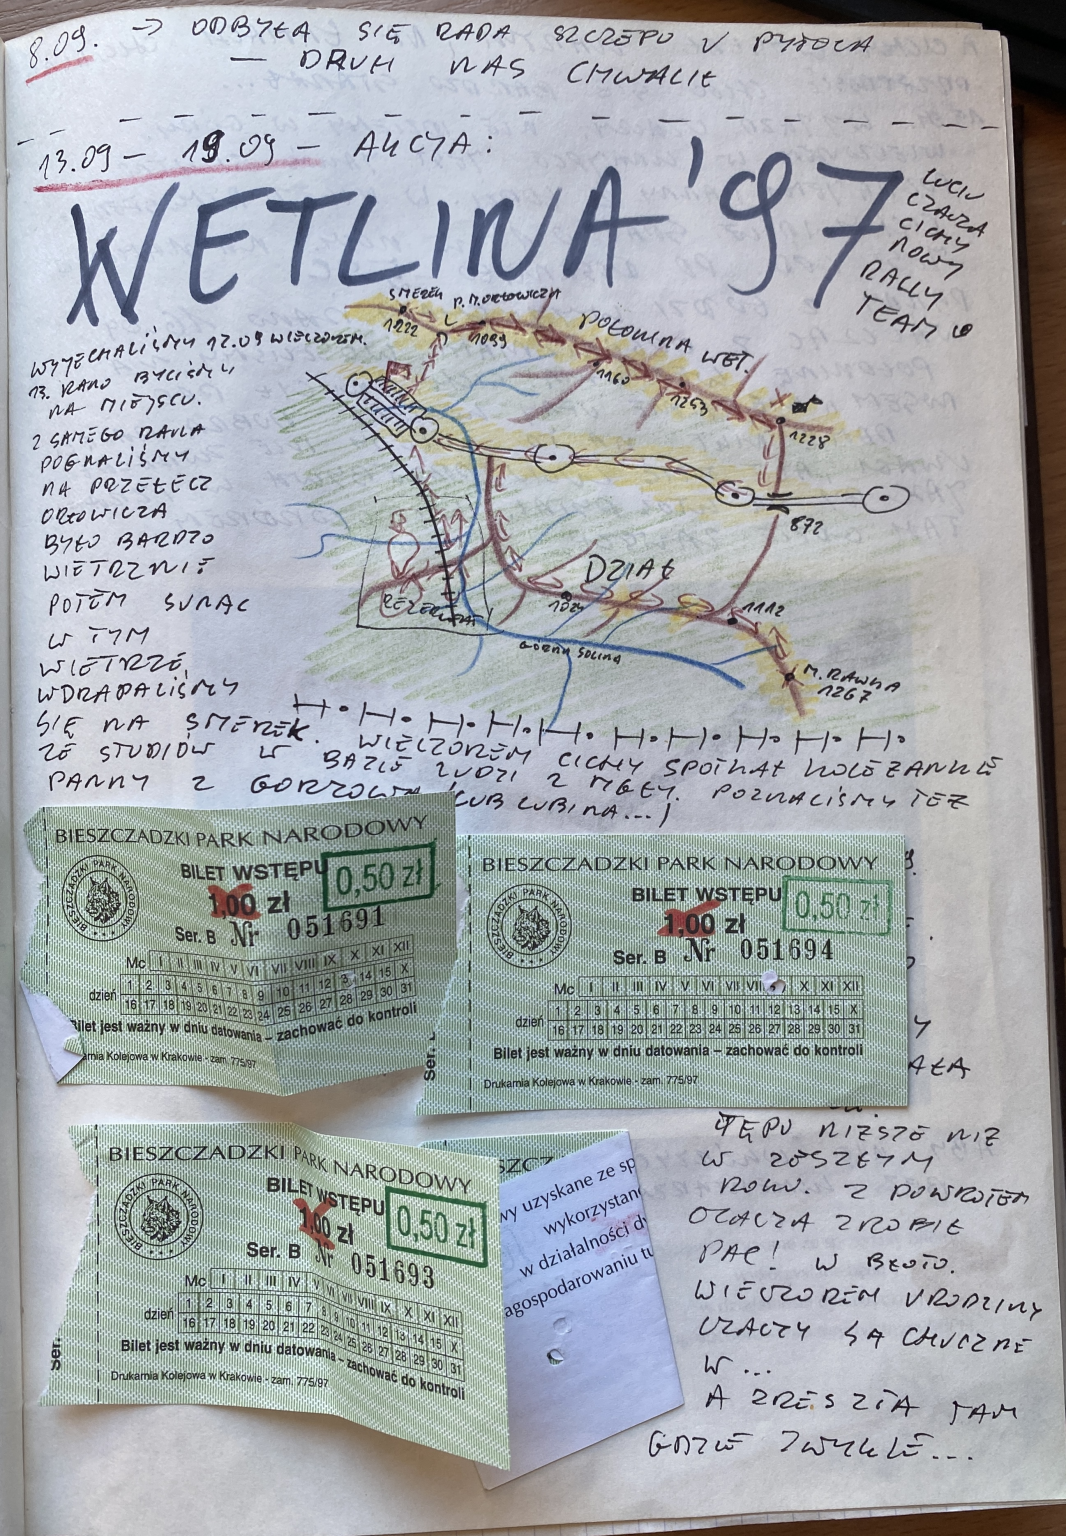 8.09. → ODBYŁA SIĘ RADA SZCZEPU U PYTOCA
— DRUH NAS CHWALIŁ
13.09 – 19.09 – AKCJA:
WETLINA '97
WCIU
CZACZA
CICHY
NOWY
RALLY
TEAM
SMEREK
1222
P. M. ORŁOWICZA
1099
POŁONINA WET.
1160
1253
1228
872
DZIAŁ
1112
GÓRNA SOLINA
M. RAWKA
1267
WYJECHALIŚMY 12.09 WIECZOREM.
13. RANO BYLIŚMY
NA MIEJSCU.
Z SAMEGO RANA
POGNALIŚMY
NA PRZEŁĘCZ
ORŁOWICZA
BYŁO BARDZO
WIETRZNIE
POTEM SUNĄC
W TYM
WIETRZE,
WDRAPALIŚMY
SIĘ NA SMEREK. WIECZOREM CICHY SPOTKAŁ KOLEŻANKĘ
ZE STUDIÓW W BAZIE LUDZI Z MGŁY. POZNALIŚMY TEŻ
PANNY Z GORZOWA (LUB LUBINA...)
BIESZCZADZKI PARK NARODOWY
BILET WSTĘPU
1,00 zł
0,50 zł
Ser. B Nr 051691
Mc I II III IV V VI VII VIII IX X XI XII
dzień 1 2 3 4 5 6 7 8 9 10 11 12 13 14 15 X
16 17 18 19 20 21 22 23 24 25 26 27 28 29 30 31
Bilet jest ważny w dniu datowania – zachować do kontroli
arnia Kolejowa w Krakowie - zam. 775/97
BIESZCZADZKI PARK NARODOWY
BIESZCZADZKI PARK NARODOWY
BILET WSTĘPU
1,00 zł
0,50 zł
Ser. B Nr 051694
Mc I II III IV V VI VII VIII X XI XII
dzień 1 2 3 4 5 6 7 8 9 10 11 12 13 14 15 X
16 17 18 19 20 21 22 23 24 25 26 27 28 29 30 31
Bilet jest ważny w dniu datowania – zachować do kontroli
Drukarnia Kolejowa w Krakowie - zam. 775/97
BIESZCZADZKI PARK NARODOWY
Ser.
BIESZCZADZKI PARK NARODOWY
BILET WSTĘPU
1,00 zł
0,50 zł
Ser. B Nr 051693
Mc I II III IV V VI VII VIII IX X XI XII
dzień 1 2 3 4 5 6 7 8 9 10 11 12 13 14 15 X
16 17 18 19 20 21 22 23 24 25 26 27 28 29 30 31
Bilet jest ważny w dniu datowania – zachować do kontroli
Drukarnia Kolejowa w Krakowie - zam. 775/97
BIESZCZADZKI PARK NARODOWY
Ser.
SZCZ
wy uzyskane ze sp
wykorzystane
w działalności dy
agospodarowaniu tu
AŁA
TĘPU NIŻSZE NIŻ
W ZESZŁYM
ROKU. Z POWROTEM
CZACZA ZROBIŁ
PAC! W BŁOTO.
WIECZOREM URODZINY
CZACZY SĄ HUCZNE
W...
A ZRESZTĄ TAM
GDZIE ZWYKLE...